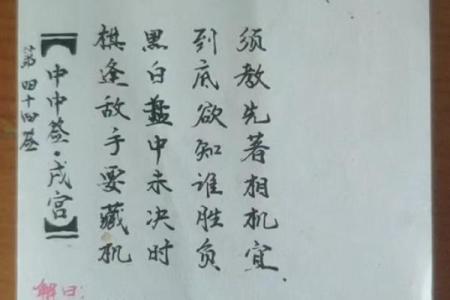 第四十四签
【中中签·戌宫】
棋逢敌手要藏机
黑白盘中未决时
到底欲知谁胜负
须教先著相机宜.
解曰: